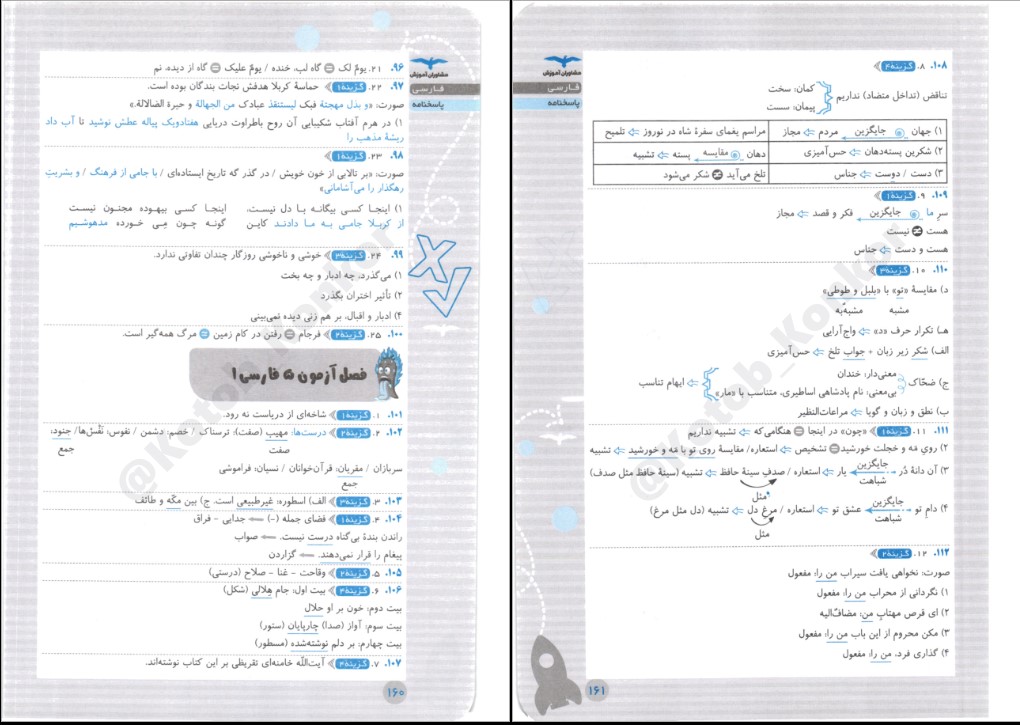 مشاوران آموزش
فارسی
پاسخنامه
۹۶. ۲۱. یومٌ لک = گاه لب، خنده / یومٌ علیک = گاه از دیده، نم
۹۷. ۲۲. گزینهٔ ۱ حماسهٔ کربلا هدفش نجات بندگان بوده است.
صورت: «و بذل مهجتهٔ فیک لیستنقذ عبادک من الجهالة و حیرة الضلالة.»
۱) در هرم آفتاب شکیبایی آن روح باطراوت دریایی هفتادویک پیاله عطش نوشید تا آب داد
ریشهٔ مذهب را
۹۸. ۲۳. گزینهٔ ۱
صورت: «بر تالابی از خون خویش / در گذر که تاریخ ایستاده‌ای / با جامی از فرهنگ / و بشریتِ
رهگذار را می‌آشامانی»
۱) اینجا کسی بیگانه با دل نیست، اینجا کسی بیهوده مجنون نیست
از کربلا جامی به ما دادند کاین گونه چون مِی خورده مدهوشیم
۹۹. ۲۴. گزینهٔ ۳ خوشی و ناخوشی روزگار چندان تفاوتی ندارد.
۱) می‌گذرد، چه ادبار و چه بخت
۲) تأثیر اختران بگذرد
۴) ادبار و اقبال، بر هم زنی دیده نمی‌بینی
۱۰۰. ۲۵. گزینهٔ ۲ فرجام = رفتن در کام زمین = مرگ همه‌گیر است.
فصل آزمون ۵ فارسی ۱
۱۰۱. ۱. گزینهٔ ۱ شاخه‌ای از دریاست نه رود.
۱۰۲. ۲. گزینهٔ ۲ درست‌ها: مهیب (صفت): ترسناک / خصم: دشمن / نفوس: نَفْس‌ها / جنود:
صفت جمع
سربازان / مقریان: قرآن‌خوانان / نسیان: فراموشی
جمع
۱۰۳. ۳. گزینهٔ ۳ الف) اسطوره: غیرطبیعی است. ج) بین مکّه و طائف
۱۰۴. ۴. گزینهٔ ۱ فضای جمله (-) ← جدایی - فراق
راندن بندهٔ بی‌گناه درست نیست. ← صواب
پیغام را قرار نمی‌دهند. ← گزاردن
۱۰۵. ۵. گزینهٔ ۲ وقاحت - غنا - صلاح (درستی)
۱۰۶. ۶. گزینهٔ ۴ بیت اول: جام هِلالی (شکل)
بیت دوم: خون بر او حلال
بیت سوم: آواز (صدا) چارپایان (ستور)
بیت چهارم: بر دلم نوشته‌شده (مسطور)
۱۰۷. ۷. گزینهٔ ۴ آیت‌اللّه خامنه‌ای تقریظی بر این کتاب نوشته‌اند.
۱۶۰
@Kotob_Konkor
مشاوران آموزش
فارسی
پاسخنامه
۱۰۸. ۸. گزینهٔ ۴
تناقض (تداخل متضاد) نداریم
کمان: سخت
پیمان: سست
۱) جهان جایگزین مردم ⇐ مجاز مراسم یغمای سفرهٔ شاه در نوروز ⇐ تلمیح
۲) شکرین پسته‌دهان ⇐ حس‌آمیزی دهان مقایسه پسته ⇐ تشبیه
۳) دست / دوست ⇐ جناس تلخ می‌آید ≠ شکر می‌شود
۱۰۹. ۹. گزینهٔ ۱
سرِ ما جایگزین فکر و قصد ⇐ مجاز
هست ≠ نیست
هست و دست ⇐ جناس
۱۱۰. ۱۰. گزینهٔ ۳
د) مقایسهٔ «تو» با «بلبل و طوطی»
مشبه مشبه‌ٌبه
هـ) تکرار حرف «د» ⇐ واج‌آرایی
الف) شکر زیر زبان + جواب تلخ ⇐ حس‌آمیزی
ج) ضحّاک معنی‌دار: خندان
بی‌معنی: نام پادشاهی اساطیری، متناسب با «مار» ⇐ ایهام تناسب
ب) نطق و زبان و گویا ⇐ مراعات‌النظیر
۱۱۱. ۱۱. گزینهٔ ۱ «چون» در اینجا = هنگامی‌که ⇐ تشبیه نداریم
۲) رویِ مَه و خجلت خورشید = تشخیص ⇐ استعاره/ مقایسهٔ روی تو با مَه و خورشید ⇐ تشبیه
۳) آن دانهٔ دُر جایگزین شباهت یار ⇐ استعاره / صدفِ سینهٔ حافظ ⇐ تشبیه (سینهٔ حافظ مثل صدف)
مثل
۴) دام تو جایگزین شباهت عشق تو ⇐ استعاره / مرغ دل ⇐ تشبیه (دل مثل مرغ)
مثل
۱۱۲. ۱۲. گزینهٔ ۲
صورت: نخواهی یافت سیراب من را: مفعول
۱) نگردانی از محراب من را: مفعول
۲) ای قرص مهتابِ من: مضاف‌ٌالیه
۳) مکن محروم از این باب من را: مفعول
۴) گذاری فرد، من را: مفعول
۱۶۱
@Kotob_Konkor